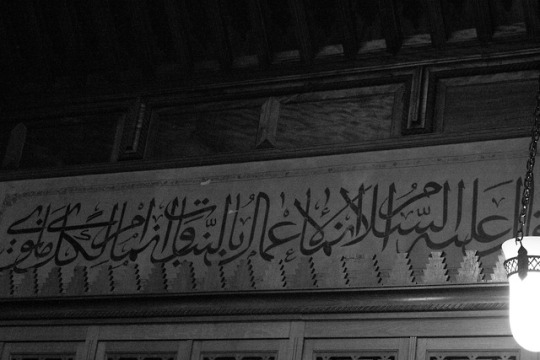 عليه السلام الا انما الاعمال بالنيات انما لكل امرئ ما نوى